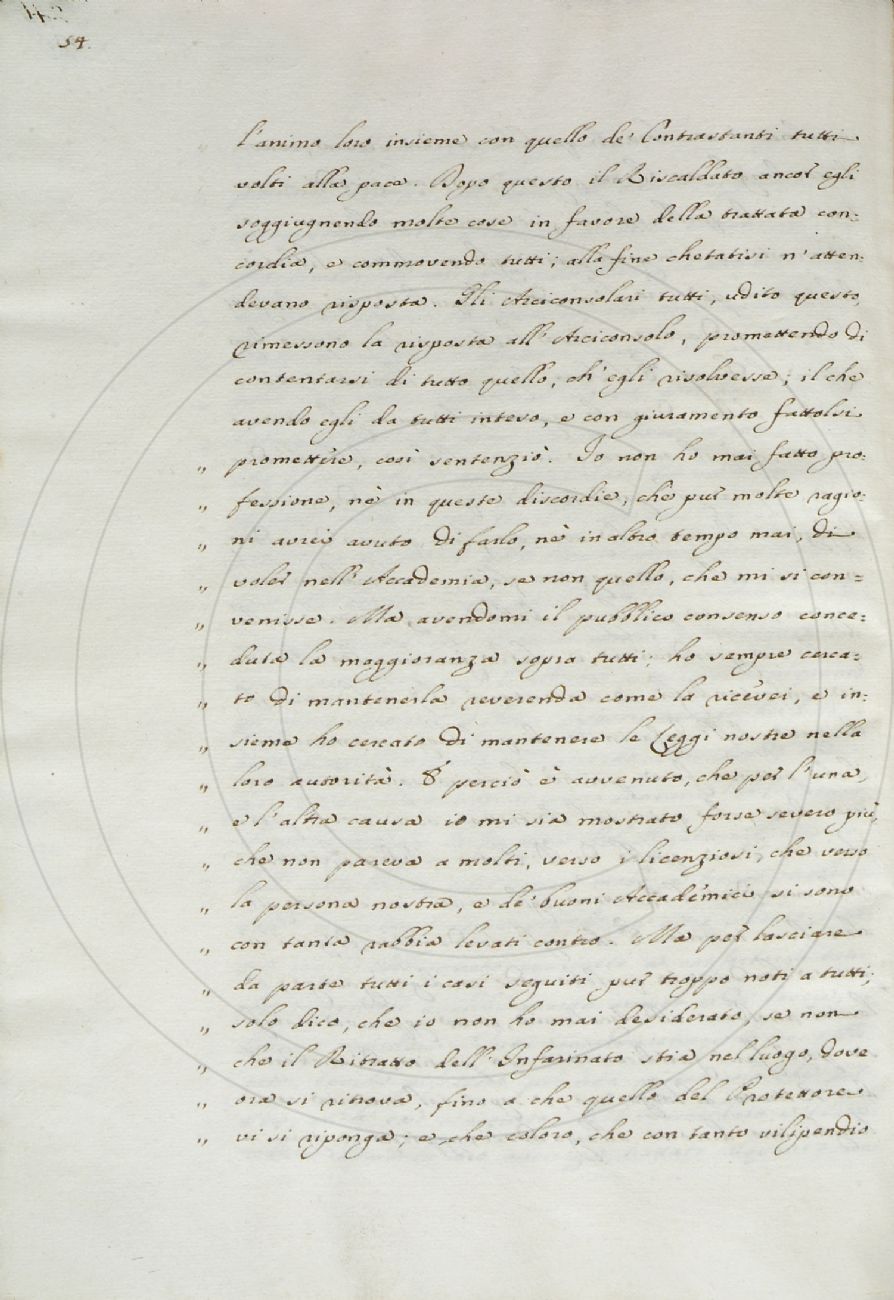 54.
l'animo loro insieme con quello de' Contrastanti tutti
volti alla pace. Dopo questo il Riscaldato ancor egli
soggiugnendo molte cose in favore della trattata con=
cordia, e commovendo tutti; alla fine chetatisi n'atten=
devano risposta. Gli Arciconsolari tutti, udito questo,
rimessono la risposta all'Arciconsolo, promettendo di
contentarsi di tutto quello, ch'egli risolvesse; il che
avendo egli da tutti inteso, e con giuramento fattolsi
„ promettere, così sentenziò. Io non ho mai fatto pro=
„ fessione, nè in queste discordie, che pur molte ragio=
„ ni avrei avuto di farlo, nè in altro tempo mai, di
„ voler nell'Accademia, se non quello, che mi si con=
„ venisse. Ma avendomi il pubblico consenso conce=
„ duta la maggioranza sopra tutti; ho sempre cerca=
„ to di mantenerla reverenda come la ricevei, e in=
„ sieme ho cercato di mantenere le Leggi nostre nella
„ loro autorità. E perciò è avvenuto, che per l'una,
„ e l'altra causa io mi sia mostrato forse severo più,
„ che non pareva a molti, verso i licenziosi, che verso
„ la persona nostra, e de' buoni Accademici si sono
„ con tanta rabbia levati contro. Ma per lasciare
„ da parte tutti i casi seguiti pur troppo noti a tutti;
„ solo dico, che io non ho mai desiderato, se non
„ che il Ritratto dell'Infarinato stia nel luogo, dove
„ ora si ritrova, fino a che quello del Protettore
„ vi si riponga; e che coloro, che con tanto vilipendio